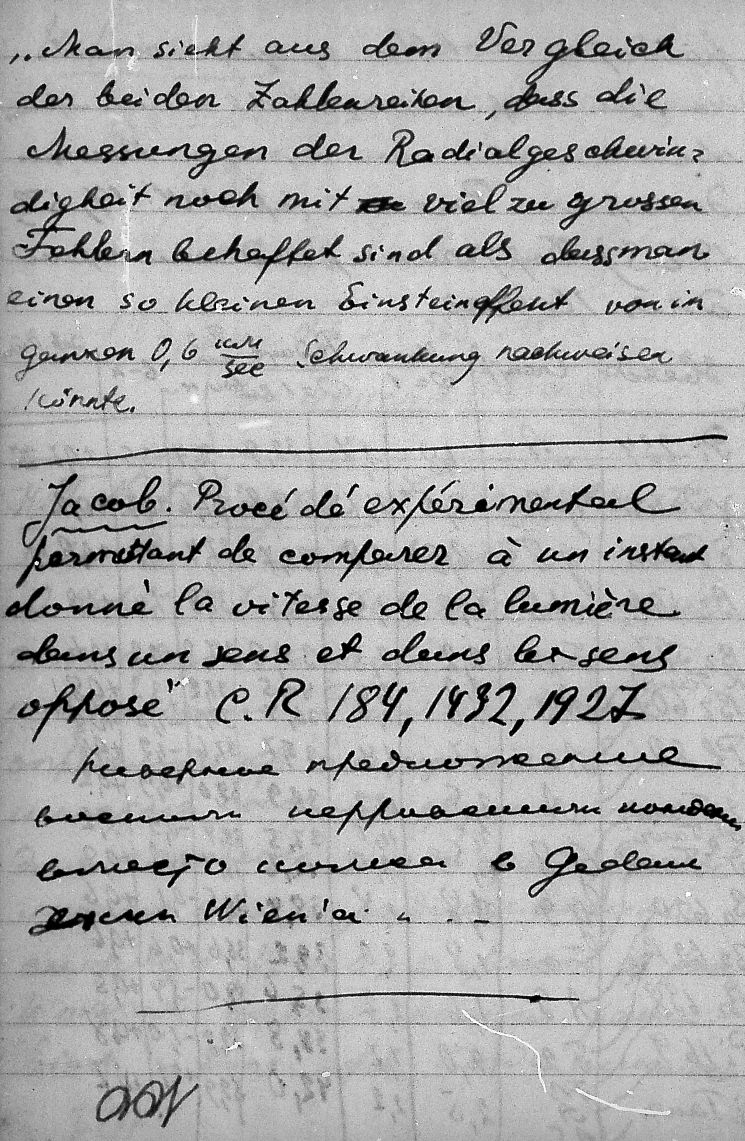 „Man sieht aus dem Vergleich
der beiden Zahlenreihen, dass die
Messungen der Radialgeschwin-
digkeit noch mit viel zu grossen
Fehlern behaftet sind als dass man
einen so kleinen Einsteineffekt von im
ganzen 0,6 km/sec Schwankung nachweisen
könnte.
Jacob. Procédé expérimental
permettant de comparer à un instant
donné la vitesse de la lumière
dans un sens et dans le sens
opposé" C.R 184, 1432, 1927
предложение
вместо в
Wien'a